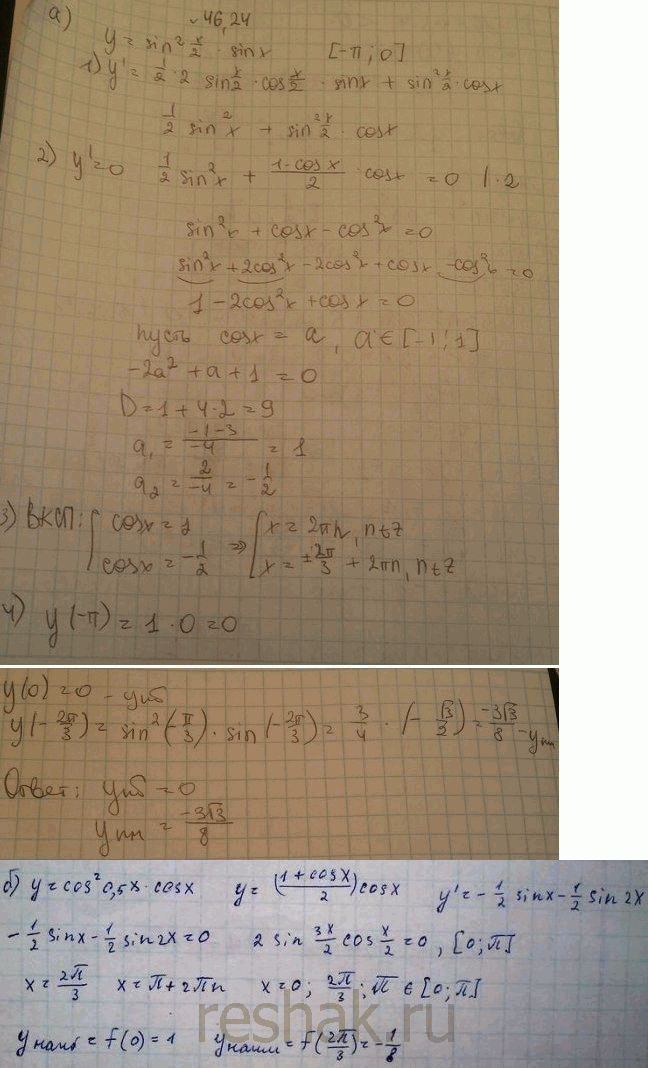 №46,24
а) y = sin² x/2 · sinx [-π; 0]
1) y' = 1/2 · 2 sin x/2 · cos x/2 · sinx + sin² x/2 · cosx
1/2 sin² x + sin² x/2 · cosx
2) y' = 0 1/2 sin² x + (1-cosx)/2 · cosx = 0 | · 2
sin²x + cosx - cos²x = 0
sin²x + 2cos²x - 2cos²x + cosx - cos²x = 0
1 - 2cos²x + cosx = 0
Пусть cosx = a, a ∈ [-1; 1]
-2a² + a + 1 = 0
D = 1 + 4·2 = 9
a₁ = (-1-3)/(-4) = 1
a₂ = 2/(-4) = -1/2
3) ВКСП: { cosx = 1 ⇒ [ x = 2πn, n∈z
cosx = -1/2 x = ±2π/3 + 2πn, n∈z
4) y(-π) = 1 · 0 = 0
y(0) = 0 - yнб
y(-2π/3) = sin²(-π/3) · sin(-2π/3) = 3/4 · (-√3/2) = -3√3/8 - yнм
Ответ: yнб = 0
yнм = -3√3/8
б) y = cos² 0,5x · cosx y = ((1+cosx)/2) cosx y' = -1/2 sinx - 1/2 sin2x
-1/2 sinx - 1/2 sin2x = 0 2 sin 3x/2 cos x/2 = 0, [0; π]
x = 2π/3 x = π + 2πn x = 0; 2π/3; π ∈ [0; π]
yнаиб = f(0) = 1 yнаим = f(2π/3) = -1/8
reshak.ru